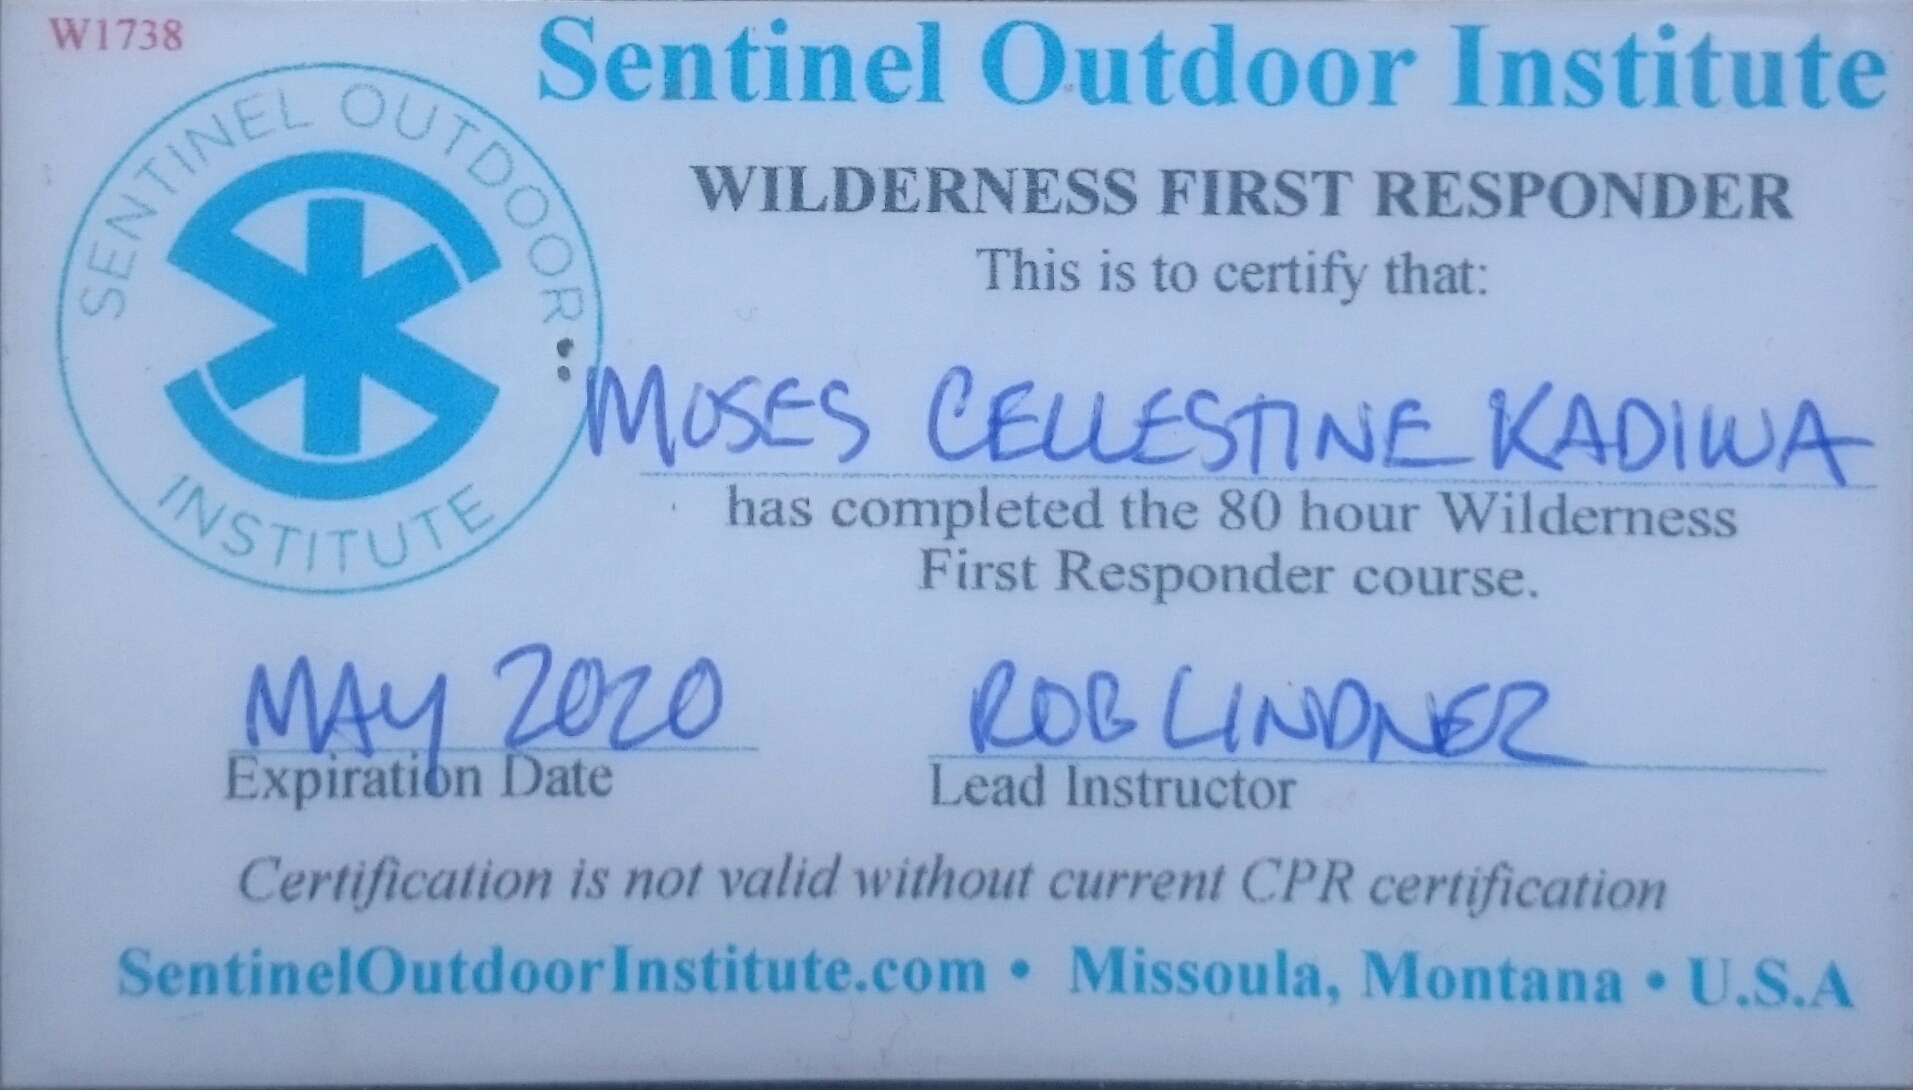 W1738
Sentinel Outdoor Institute
SENTINEL OUTDOOR
INSTITUTE
WILDERNESS FIRST RESPONDER
This is to certify that:
MOSES CELLESTINE KADIWA
has completed the 80 hour Wilderness
First Responder course.
MAY 2020
ROB LINDNER
Expiration Date
Lead Instructor
Certification is not valid without current CPR certification
SentinelOutdoorInstitute.com • Missoula, Montana • U.S.A